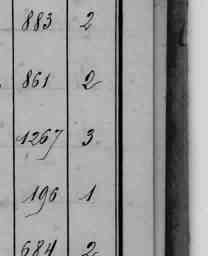 883 2
861 2
1267 3
196 1
684 2